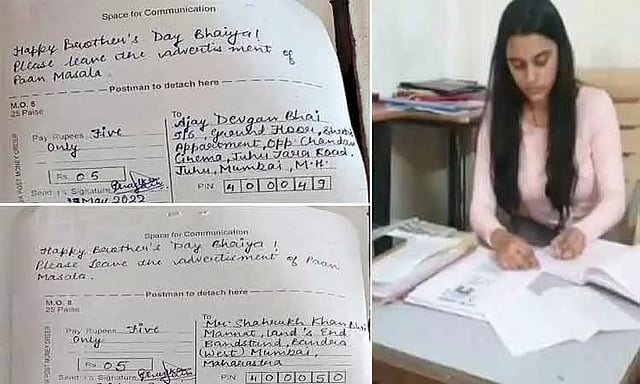 Space for Communication
Happy Beother's Day Bhaiya!
Please leave the advertisment of
Paan Masala.
Postman to detach here
M.O. 8
25 Paise
Pay Rupees Five
Only
Rs 05
Send Signature
May 2022
To
Ajay Devgan Bhai
Ground Floor,
Appartment, Opp. Chandan
Cinema, Juhu Tara Road.
Juhu, Mumbai, M.H.
PIN 400049
MONEY ORDER
Space for Communication
Happy Beother's Day Bhaiya!
Please leave the advertisment of Paan
Masala.
Postman to detach here
M.O. 8
25 Paise
Pay Rupees Five
Only
Rs 05
Signature
To
Mr. Shahrukh Khan Bhai
Mannat, land's End
Bandstand, Bandra
(West) Mumbai,
Maharastra
PIN 400050
MONEY ORDER